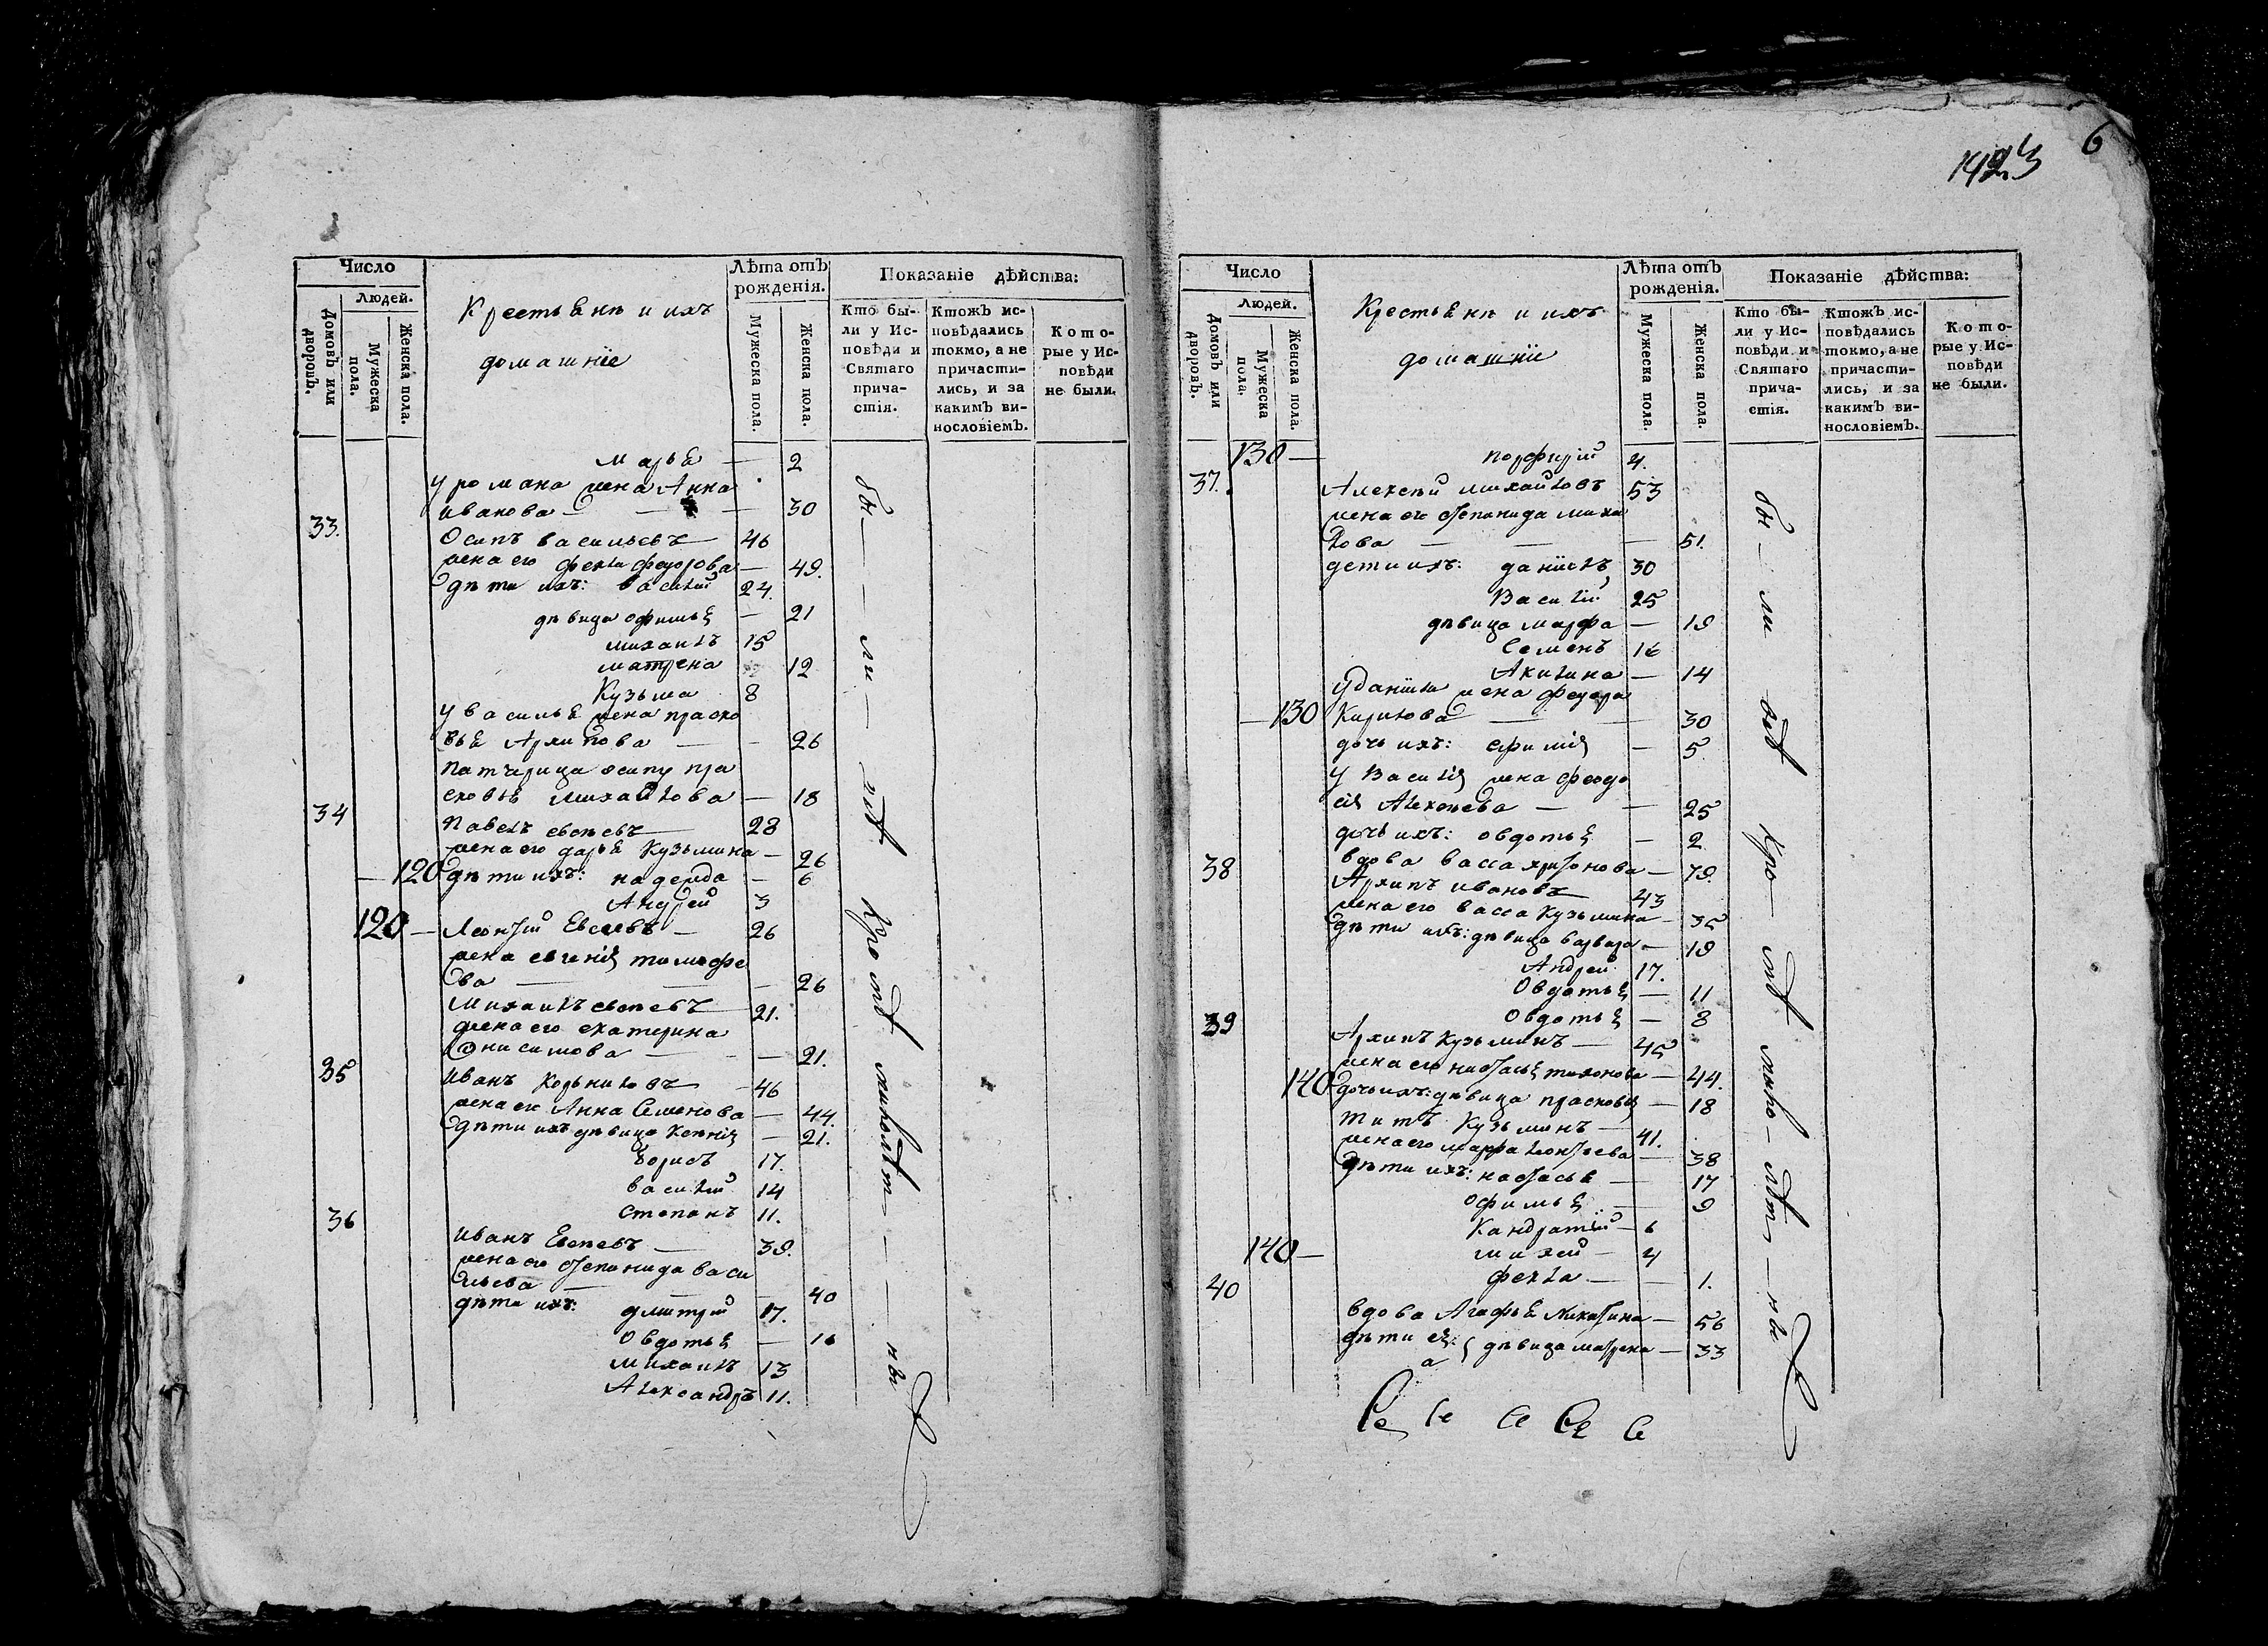 6
1423
Число
Лѣта отъ рожденія.
Показаніе дѣйства:
Домовъ или дворовъ.
Людей.
Мужеска пола.
Женска пола.
Крестьяне и ихъ
домашніе
Мужеска пола.
Женска пола.
Кто бы-
ли у Ис-
повѣди и
Святаго
прича-
стія.
Ктожъ ис-
повѣдались
токмо, а не
причасти-
лись, и за
какимъ ви-
нословіемъ.
Кото-
рые у Ис-
повѣди
не были.
марья — 2
у романа жена Анна
иванова — 30
33. Осипъ васильевъ 46
жена его фекла федорова — 49.
дѣти ихъ: василій 24.
дѣвица офимья — 21
михаилъ 15
матрена 12
Кузьма 8
у василья жена праско
вья Архипова — 26
патчерица осипу пра
сковья михайлова — 18
34 Павелъ евсѣевъ 28
жена его дарья Кузьмина — 26
— 120 дѣти ихъ: надежда — 6
Андрей 3
120 — Леонтій Евсеевъ — 26
жена евгенія тимофе
ва — 26
Михаилъ евсѣевъ 21.
жена его екатерина
Онисимова — 21.
35 иванъ Корниловъ 46
жена ег Анна Семенова — 44.
дѣти ихъ дѣвица Ксенія — 21.
борисъ 17.
василій 14
степанъ 11.
36 иванъ Евсѣевъ 39.
жена ег степанида васи
льева — 40
дѣти ихъ: дмитрій 17.
Овдотья — 16
михаилъ 13
Александръ 11.
бы — ли — всѣ кромѣ малолѣт — ны
Число
Лѣта отъ рожденія.
Показаніе дѣйства:
Домовъ или дворовъ.
Людей.
Мужеска пола.
Женска пола.
Крестьяне и ихъ
домашніе
Мужеска пола.
Женска пола.
Кто бы-
ли у Ис-
повѣди и
Святаго
прича-
стія.
Ктожъ ис-
повѣдались
токмо, а не
причасти-
лись, и за
какимъ ви-
нословіемъ.
Кото-
рые у Ис-
повѣди
не были.
130 — порфирій 4.
37. Алексѣй михайловъ 53
жена ег степанида миха
лова — 51.
дети ихъ: даніилъ 30
Василій 25
дѣвица марфа — 19
Семенъ 16
Акилина — 14
у даніила жена федора
— 130 Кирилова — 30
дочь ихъ: ефимія — 5.
у Василія жена феодо
сія Алексѣева — 25
дочь ихъ: овдотья — 2
38 вдова васса — 79.
Архипъ ивановъ 43
жена его васса Кузьмина — 35
дѣти ихъ: дѣвица варвара — 19
Андрей 17.
Овдотья — 11
Овдотья — 8
39 Архипъ Кузьминъ — 45
жена его настасья тихонова — 44.
140 дочь ихъ: дѣвица прасковья — 18
титъ Кузьминъ — 41.
жена его марфа леонтьева — 38
дѣти ихъ: настасья — 17
Офимья — 9
Кандратій — 6
140 — михей — 4
фекла — 1.
40 вдова Агафья Никитина — 56
дѣти ея: дѣвица матрена — 33
а
бы — ли всѣ кро — мѣ мало — лѣт — ны
Се Се Се Се Се